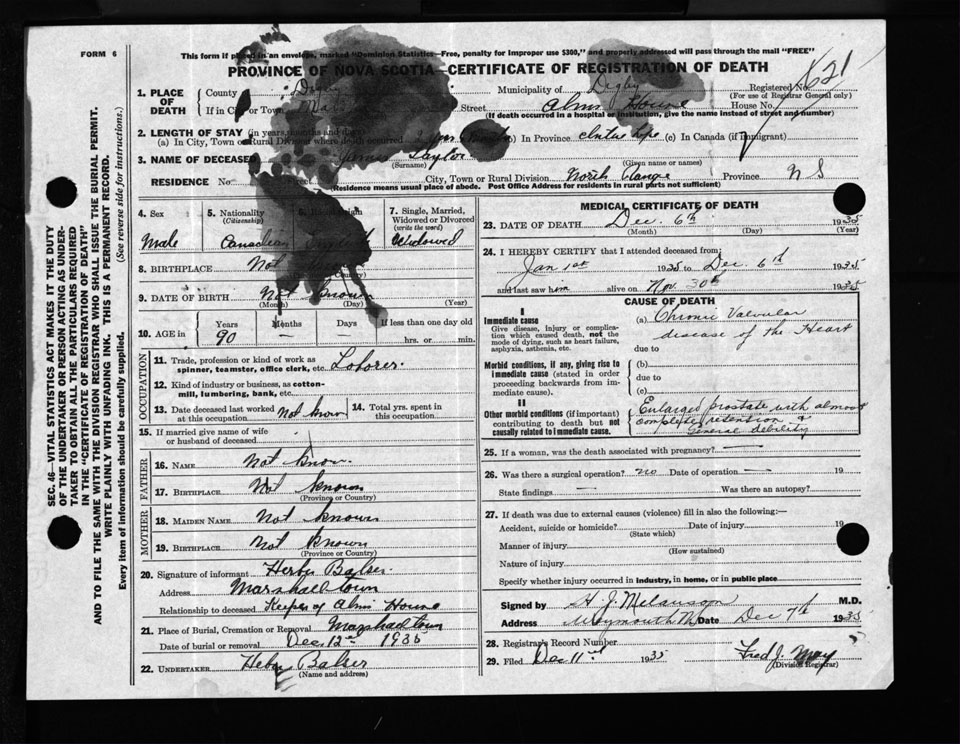 FORM 6
This form if placed in an envelope, marked "Dominion Statistics—Free, penalty for improper use $300," and properly addressed will pass through the mail "FREE"
PROVINCE OF NOVA SCOTIA—CERTIFICATE OF REGISTRATION OF DEATH
621
1. PLACE OF DEATH
County Digby Municipality of Digby Registered No.
(For use of Registrar General only)
If in City or Town Street Alms House House No.
(If death occurred in a hospital or institution, give the name instead of street and number)
2. LENGTH OF STAY (in years, months and days)
(a) In City, Town or Rural Division where death occurred (b) In Province entire life (c) In Canada (if immigrant)
3. NAME OF DECEASED James Taylor
(Surname) (Given name or names)
RESIDENCE No. Street City, Town or Rural Division North Range Province N S
(Residence means usual place of abode. Post Office Address for residents in rural parts not sufficient)
4. Sex
Male
5. Nationality (Citizenship)
Canadian
6.
7. Single, Married, Widowed or Divorced (write the word)
Widowed
8. BIRTHPLACE Not
9. DATE OF BIRTH Not known
(Month) (Day) (Year)
10. AGE in
Years Months Days If less than one day old
90 hrs. or min.
OCCUPATION
11. Trade, profession or kind of work as spinner, teamster, office clerk, etc. Laborer
12. Kind of industry or business, as cotton-mill, lumbering, bank, etc.
13. Date deceased last worked at this occupation Not know
14. Total yrs. spent in this occupation
15. If married give name of wife or husband of deceased
FATHER
16. NAME Not know
17. BIRTHPLACE Not known
(Province or Country)
MOTHER
18. MAIDEN NAME Not known
19. BIRTHPLACE Not known
(Province or Country)
20. Signature of informant Heber Balser
Address Marshalltown
Relationship to deceased Keeper of Alms House
21. Place of Burial, Cremation or Removal Marshalltown
Date of burial or removal Dec 12th 1935
22. UNDERTAKER Heber Balser
(Name and address)
MEDICAL CERTIFICATE OF DEATH
23. DATE OF DEATH Dec. 6th 1935
(Month) (Day) (Year)
24. I HEREBY CERTIFY that I attended deceased from:
Jan 1st 1935 to Dec. 6th 1935
and last saw him alive on Nov. 30th 1935
CAUSE OF DEATH
I
Immediate cause
Give disease, injury or complication which caused death, not the mode of dying, such as heart failure, asphyxia, asthenia, etc.
(a) Chronic Valvular
disease of the Heart
due to
Morbid conditions, if any, giving rise to immediate cause (stated in order proceeding backwards from immediate cause).
(b)
due to
(c)
II
Other morbid conditions (if important) contributing to death but not causally related to immediate cause.
Enlarged prostate with almost
complete retention &
General debility
25. If a woman, was the death associated with pregnancy? —
26. Was there a surgical operation? no Date of operation — 19
State findings — Was there an autopsy?
27. If death was due to external causes (violence) fill in also the following:—
Accident, suicide or homicide? Date of injury 19
(State which)
Manner of injury
(How sustained)
Nature of injury
Specify whether injury occurred in industry, in home, or in public place
Signed by H J Melanson M.D.
Address Weymouth NS Date Dec 7th 1935
28. Registrar's Record Number
29. Filed Dec 11th 1935 Fred J. May
(Division Registrar)
SEC. 46—VITAL STATISTICS ACT MAKES IT THE DUTY
OF THE UNDERTAKER OR PERSON ACTING AS UNDER-
TAKER TO OBTAIN ALL THE PARTICULARS REQUIRED
IN THE "CERTIFICATE OF REGISTRATION OF DEATH"
AND TO FILE THE SAME WITH THE DIVISION REGISTRAR WHO SHALL ISSUE THE BURIAL PERMIT.
WRITE PLAINLY WITH UNFADING INK. THIS IS A PERMANENT RECORD.
Every item of information should be carefully supplied. (See reverse side for instructions.)